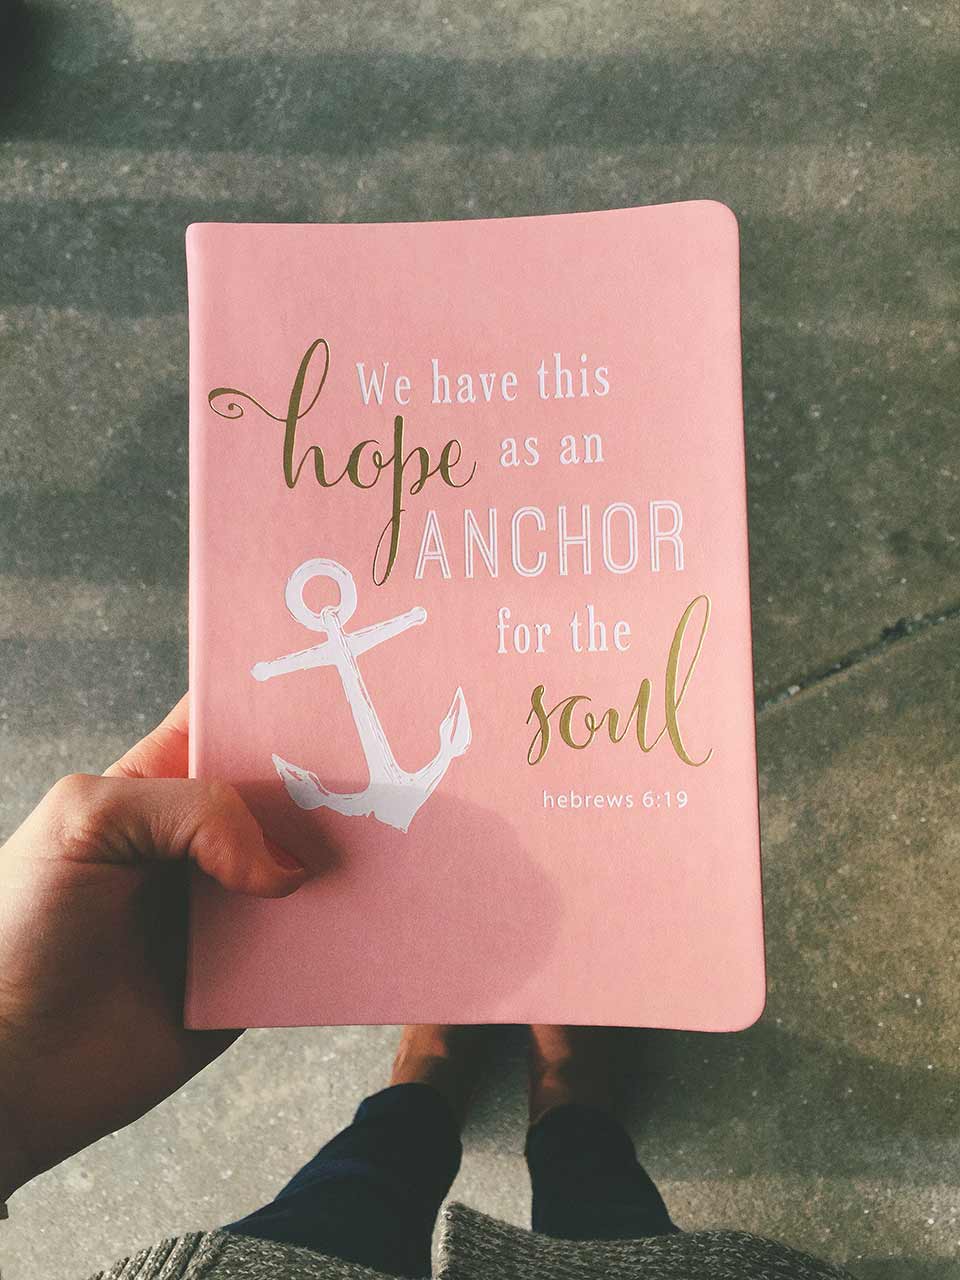 We have this
hope as an
ANCHOR
for the
soul
hebrews 6:19